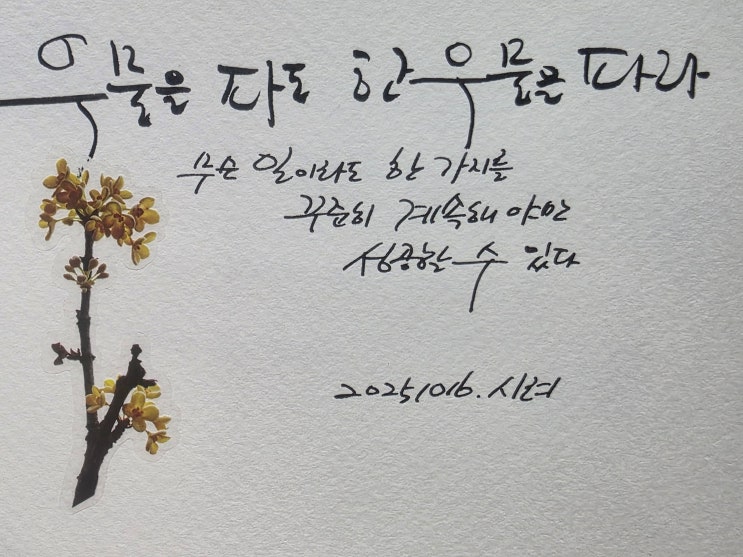 우물을 파도 한 우물을 파라
무슨 일이라도 한 가지를
꾸준히 계속해야만
성공할 수 있다
20251016. 시려